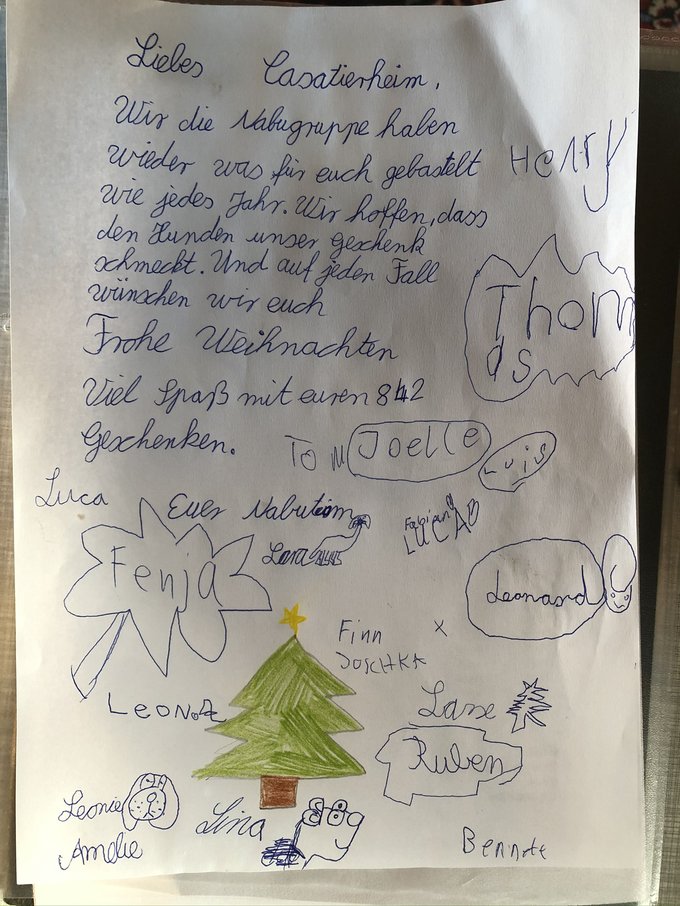 Liebes Casatierheim,
Wir die Nabugruppe haben
wieder was für euch gebastelt
wie jedes Jahr. Wir hoffen, dass
den Hunden unser Geschenk
schmeckt. Und auf jeden Fall
wünschen wir euch
Frohe Weihnachten
Viel Spaß mit euren 842
Geschenken.
Henry
Thom
as
Tom
Joelle
Luis
Luca
Euer Nabuteam
Fabian
LUCA
Lara
Fenja
Leonard
Finn
x
JOSCHKA
Lasse
Ruben
Leonie
Lina
Amelie